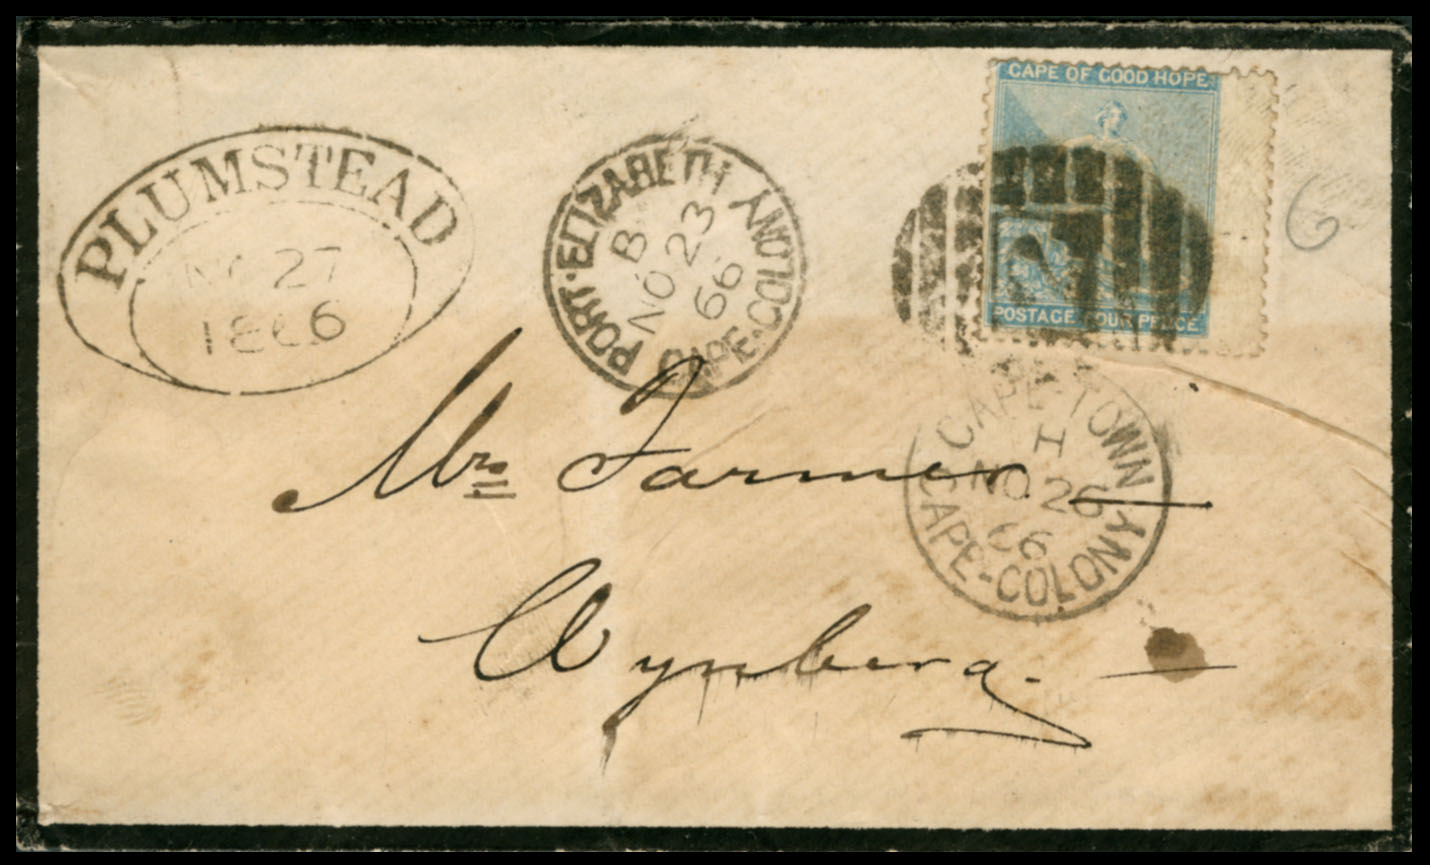 CAPE OF GOOD HOPE
POSTAGE FOUR PENCE
6
PLUMSTEAD
NO 27
1866
PORT-ELIZABETH
B
NO 23
66
CAPE-COLONY
CAPE-TOWN
H
NO 26
66
CAPE-COLONY
Mrs Farmer
Wynberg.